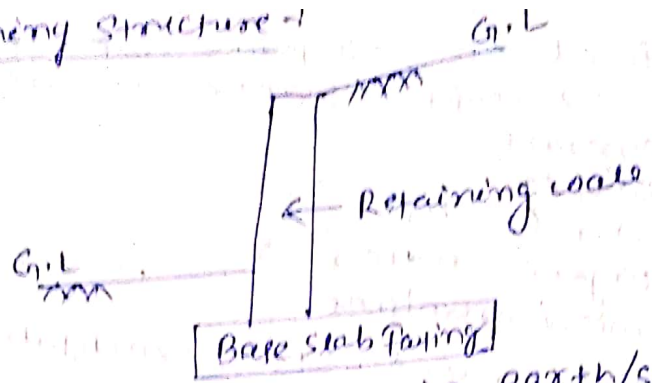 ning structure -
G.L
Retaining wall
G.L
Base slab
earth/s